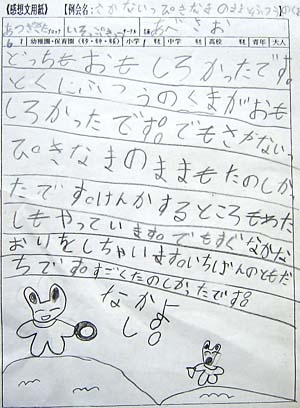 【感想文用紙】【例会名:さかないっぴきなまのままとふつうのくま
あつぎ いるっこ あべさお
6/1 幼稚園・保育園(年少・年中・年長) 小学1 中学 高校 青年 大人
どっちもおもしろかったです。
とくにふつうのくまがおも
しろかったです。でもさかない
ぴきなまのままもたのしか
たです。けんかするところもわた
しもやっています。でもすぐなかな
おりをしちゃいます。いちばんのともだ
ちです。すごくたのしかったです。
なかよし。